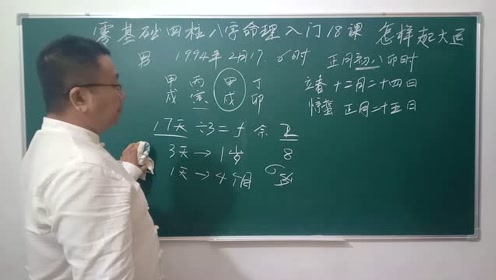 零基础四柱八字命理入门18课 怎样起大运
男 1994年2月17. 6时 正月初八卯时
甲 丙 甲 丁
戌 寅 戌 卯
立春 十二月二十四日
惊蛰 正月二十五日
17天÷3=5余2
3天→1岁 8
1天→4个月